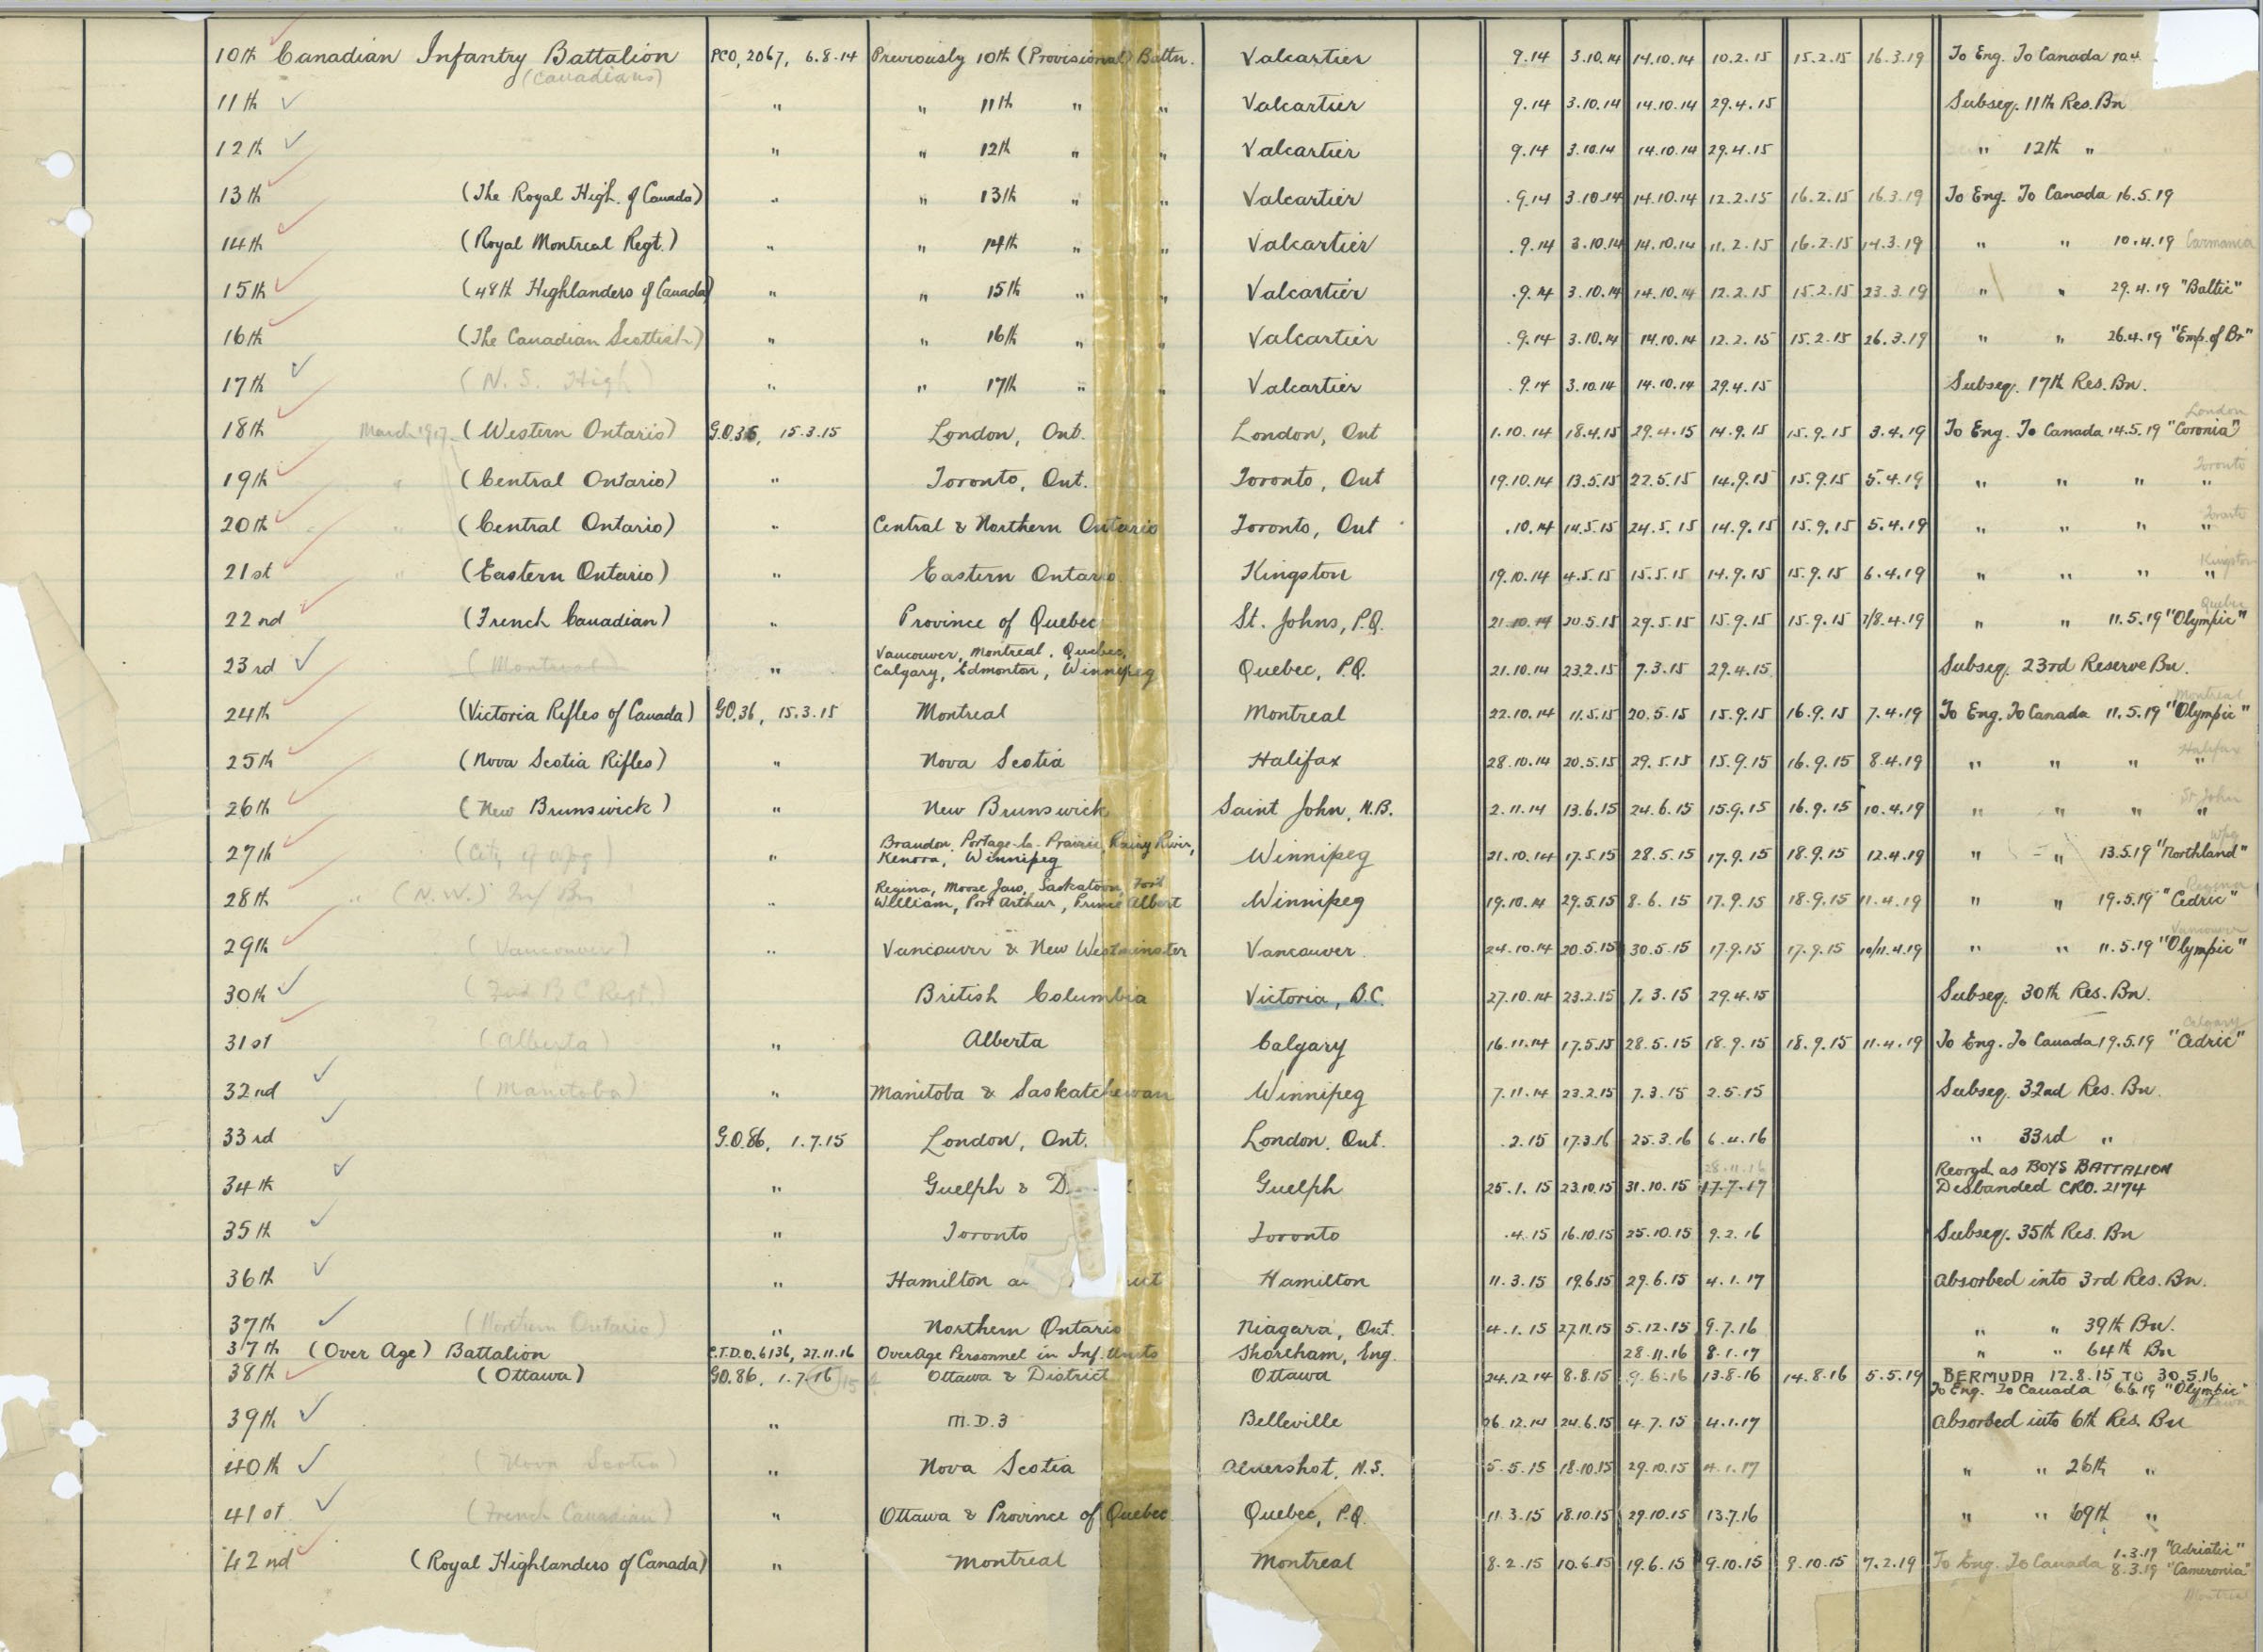 10th Canadian Infantry Battalion PCO, 2067, 6.8.14 Previously 10th (Provisional) Battn. Valcartier 9.14 3.10.14 14.10.14 10.2.15 15.2.15 16.3.19 To Eng. To Canada
(Canadians)
11th " " 11th " " Valcartier 9.14 3.10.14 14.10.14 29.4.15 Subseq. 11th Res. Bn
12th " " 12th " " Valcartier 9.14 3.10.14 14.10.14 29.4.15 " 12th "
13th (The Royal High. of Canada) " " 13th " " Valcartier .9.14 3.10.14 14.10.14 12.2.15 16.2.15 16.3.19 To Eng. To Canada 16.5.19
14th (Royal Montreal Regt.) " " 14th " " Valcartier .9.14 3.10.14 14.10.14 11.2.15 16.2.15 14.3.19 " " 10.4.19 Carmania
15th (48th Highlanders of Canada) " " 15th " " Valcartier .9.14 3.10.14 14.10.14 12.2.15 15.2.15 23.3.19 " " 29.4.19 "Baltic"
16th (The Canadian Scottish) " " 16th " " Valcartier .9.14 3.10.14 14.10.14 12.2.15 15.2.15 26.3.19 " " 26.4.19 "Emp. of Br"
17th (N.S. High) " " 17th " " Valcartier .9.14 3.10.14 14.10.14 29.4.15 Subseq. 17th Res. Bn.
London
18th March 1917 (Western Ontario) G.O.36, 15.3.15 London, Ont. London, Ont 1.10.14 18.4.15 29.4.15 14.9.15 15.9.15 3.4.19 To Eng. To Canada 14.5.19 "Coronia"
Toronto
19th " (Central Ontario) " Toronto, Ont. Toronto, Ont 19.10.14 13.5.15 22.5.15 14.9.15 15.9.15 5.4.19 " " " "
Toronto
20th " (Central Ontario) " Central & Northern Ontario Toronto, Ont .10.14 14.5.15 24.5.15 14.9.15 15.9.15 5.4.19 " " " "
Kingston
21st " (Eastern Ontario) " Eastern Ontario Kingston 19.10.14 4.5.15 15.5.15 14.9.15 15.9.15 6.4.19 " " " "
Quebec
22nd (French Canadian) " Province of Quebec St. Johns, P.Q. 21.10.14 20.5.15 29.5.15 15.9.15 15.9.15 7/8.4.19 " " 11.5.19 "Olympic"
Vancouver, Montreal, Quebec,
23rd (Montreal) " Calgary, Edmonton, Winnipeg Quebec, P.Q. 21.10.14 23.2.15 7.3.15 29.4.15 Subseq. 23rd Reserve Bn.
Montreal
24th (Victoria Rifles of Canada) GO.36, 15.3.15 Montreal Montreal 22.10.14 11.5.15 20.5.15 15.9.15 16.9.15 7.4.19 To Eng. To Canada 11.5.19 "Olympic"
Halifax
25th (Nova Scotia Rifles) " Nova Scotia Halifax 28.10.14 20.5.15 29.5.15 15.9.15 16.9.15 8.4.19 " " " "
St John
26th (New Brunswick) " New Brunswick Saint John, N.B. 2.11.14 13.6.15 24.6.15 15.9.15 16.9.15 10.4.19 " " " "
Wpg
Brandon, Portage-la-Prairie, Rainy River,
27th (City of Wpg) " Kenora, Winnipeg Winnipeg 21.10.14 17.5.15 28.5.15 17.9.15 18.9.15 12.4.19 " " 13.5.19 "Northland"
Regina
Regina, Moose Jaw, Saskatoon, Fort
28th " (N.W.) Inf Bn " William, Port Arthur, Prince Albert Winnipeg 19.10.14 29.5.15 8.6.15 17.9.15 18.9.15 11.4.19 " " 19.5.19 "Cedric"
Vancouver
29th (Vancouver) " Vancouver & New Westminster Vancouver 24.10.14 20.5.15 30.5.15 17.9.15 17.9.15 10/11.4.19 " " 11.5.19 "Olympic"
30th (2nd B C Regt.) British Columbia Victoria, B.C. 27.10.14 23.2.15 7.3.15 29.4.15 Subseq. 30th Res. Bn.
Calgary
31st (Alberta) " Alberta Calgary 16.11.14 17.5.15 28.5.15 18.9.15 18.9.15 11.4.19 To Eng. To Canada 19.5.19 "Cedric"
32nd (Manitoba) " Manitoba & Saskatchewan Winnipeg 7.11.14 23.2.15 7.3.15 2.5.15 Subseq. 32nd Res. Bn.
33rd G.O.86, 1.7.15 London, Ont. London, Ont. .2.15 17.3.16 25.3.16 6.4.16 " 33rd "
28.11.16 Reorgd as BOYS BATTALION
34th " Guelph & D Guelph 25.1.15 23.10.15 31.10.15 17.7.17 Disbanded CRO. 2174
35th " Toronto Toronto .4.15 16.10.15 25.10.15 9.2.16 Subseq. 35th Res. Bn
36th " Hamilton Hamilton 11.3.15 19.6.15 29.6.15 4.1.17 absorbed into 3rd Res. Bn.
37th (Northern Ontario) " Northern Ontario Niagara, Ont. 4.1.15 27.11.15 5.12.15 9.7.16 " " 39th Bn.
37th (Over Age) Battalion C.T.D.O. 6136, 27.11.16 OverAge Personnel in Inf. Units Shoreham, Eng. 28.11.16 8.1.17 " " 64th Bn
38th (Ottawa) GO.86, 1.7.16 15 Ottawa & District Ottawa 24.12.14 8.8.15 9.6.16 13.8.16 14.8.16 5.5.19 BERMUDA 12.8.15 TO 30.5.16
To Eng. To Canada 6.6.19 "Olympic"
Ottawa
39th " M.D.3 Belleville 26.12.14 24.6.15 4.7.15 4.1.17 absorbed into 6th Res. Bn
40th (Nova Scotia) " Nova Scotia Aldershot, N.S. 5.5.15 18.10.15 29.10.15 4.1.17 " " 26th "
41st (French Canadian) " Ottawa & Province of Quebec Quebec, P.Q. 11.3.15 18.10.15 29.10.15 13.7.16 " " 69th "
1.3.19 "Adriatic"
42nd (Royal Highlanders of Canada) " Montreal Montreal 8.2.15 10.6.15 19.6.15 9.10.15 9.10.15 7.2.19 To Eng. To Canada 8.3.19 "Cameronia"
Montreal